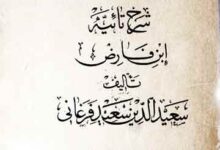 شرح تائیه
ابن فارض
تألیف
سعیدالدین سعید فرغانی